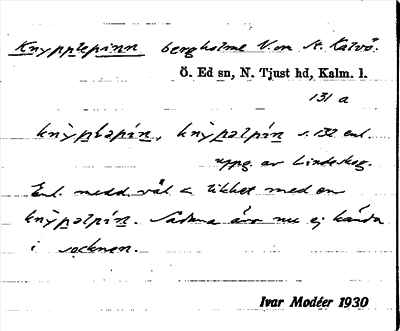 Knypplepinn bergholme V om St. Kalvö.
Ö. Ed sn, N. Tjust hd, Kalm. l.
131 a
knỳpləpín, knỳpəlpín s. 132 enl.
uppg. av Lindeskog.
Enl. medd väl < likhet med en
knỳpəlpín. Sådana äro nu ej kända
i socknen.
Ivar Modéer 1930